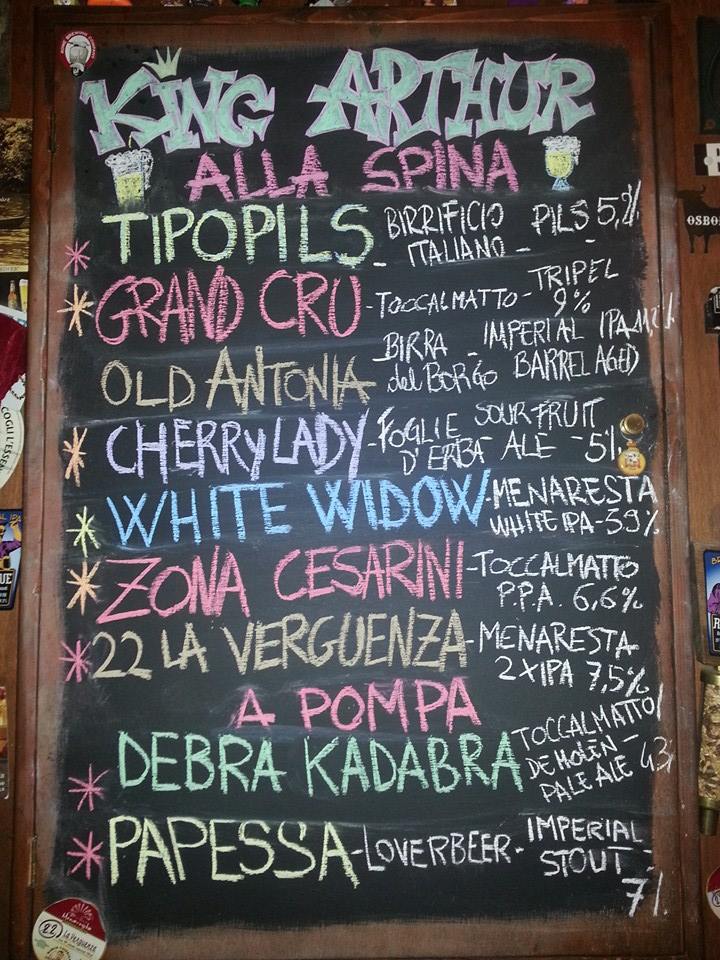 KING ARTHUR
ALLA SPINA
TIPOPILS - BIRRIFICIO ITALIANO - PILS 5,2%
GRAND CRU - TOCCALMATTO - TRIPEL 9%
OLD ANTONIA - BIRRA del BORGO - IMPERIAL IPA BARREL AGED
CHERRY LADY - FOGLIE D'ERBA SOUR FRUIT ALE - 5%
WHITE WIDOW - MENARESTA WHITE IPA - 3,9%
ZONA CESARINI - TOCCALMATTO P.P.A. 6,6%
22 LA VERGUENZA - MENARESTA 2XIPA 7,5%
A POMPA
DEBRA KADABRA TOCCALMATTO/ DE MOLEN - PALE ALE 4,3
PAPESSA - LOVERBEER - IMPERIAL STOUT - 7%
COGLI L'ESSE
OSBO
22 La Verguenza